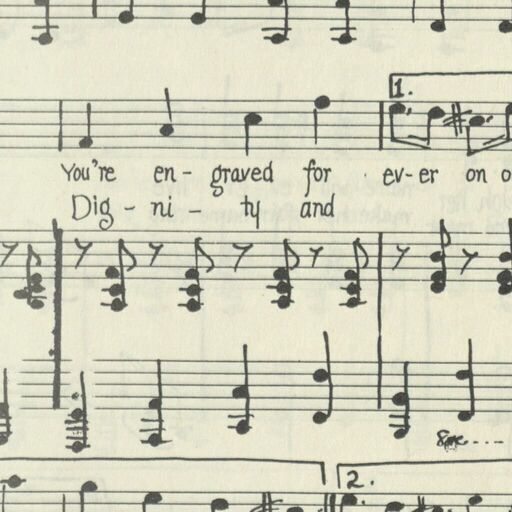 1.
You're en - graved for ev-er on
Dig - ni - ty and
8va----
2.